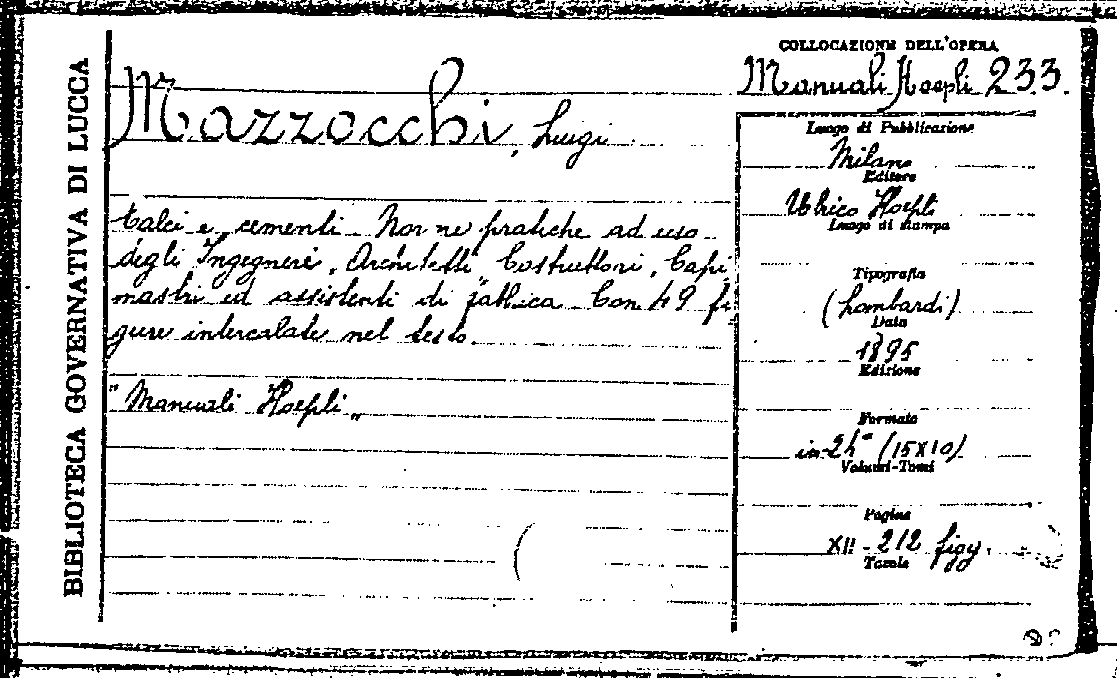 BIBLIOTECA GOVERNATIVA DI LUCCA
Mazzocchi, Luigi
Calci e cementi. Norme pratiche ad uso
degli Ingegneri, Architetti, Costruttori, Capi
mastri ed assistenti di fabbrica. Con 49 fi
gure intercalate nel testo.
"Manuali Hoepli„
COLLOCAZIONE DELL'OPERA
Manuali Hoepli 233.
Luogo di Pubblicazione
Milano
Editore
Ulrico Hoepli
Luogo di stampa
Tipografia
(Lombardi)
Data
1895
Edizione
Formato
in-24° (15X10)
Volumi-Tomi
Pagine
XII - 212 figg.
Tavole